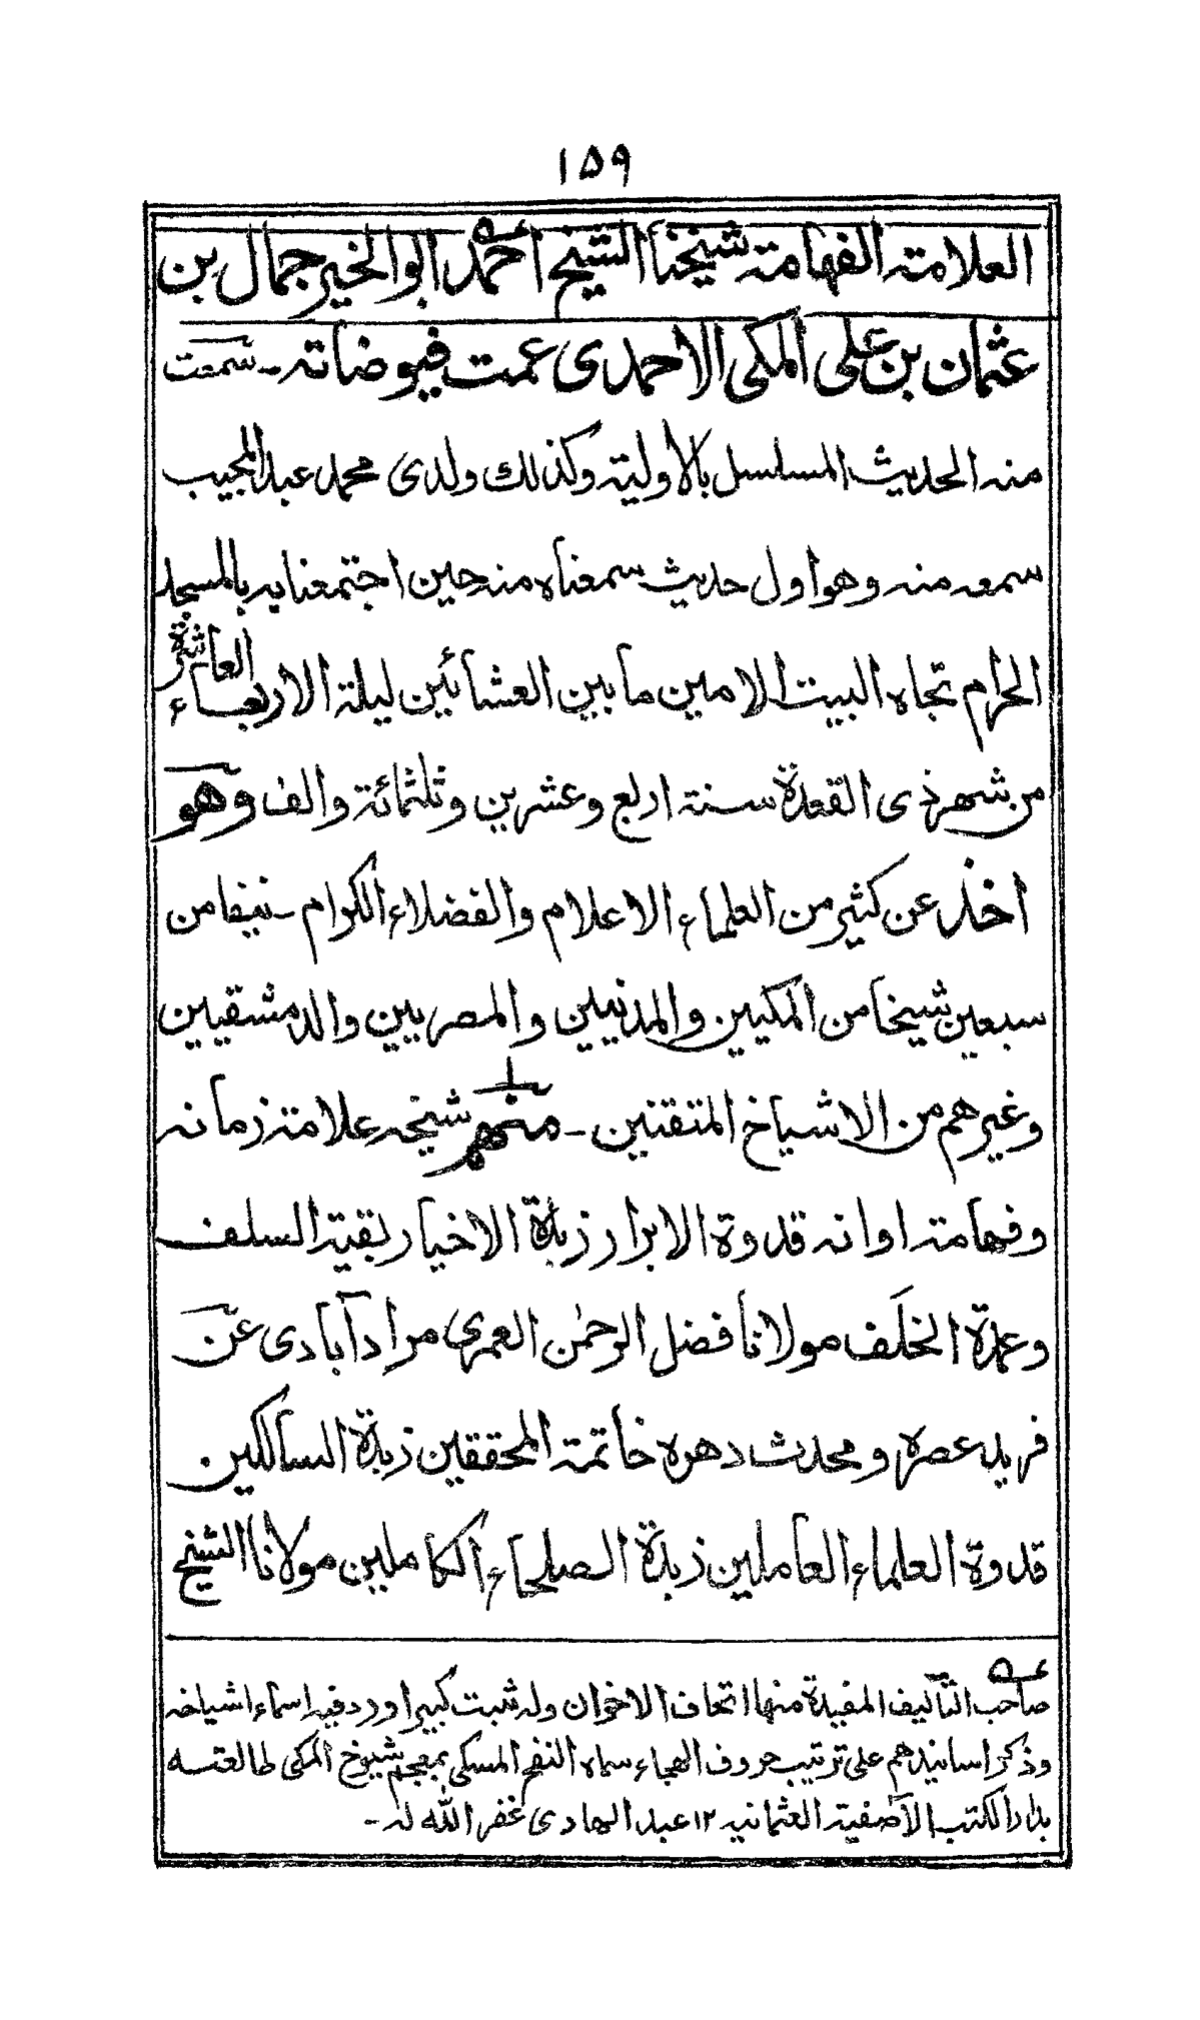 ۱۵۹
العلامة الفهامة شيخنا الشيخ أحمد ابوالخير جمال بن
عثمان بن علي المكي الاحمدى عمت فيوضاته ـ سمعت
منه الحديث المسلسل بالاولية وكذلك ولدى محمد عبدالمجيب
سمعه منه وهواول حديث سمعناه منه حين اجتمعنا به بالمسجد
الحرام تجاه البيت الامين ما بين العشائين ليلة الاربعاء العاشرة
من شهر ذى القعدة سنة اربع وعشرين وثلثمائة والف وهو
اخذ عن كثير من العلماء الاعلام والفضلاء الكرام ـ نيفا من
سبعين شيخا من المكيين والمدنيين والمصريين والدمشقيين
وغيرهم من الاشياخ المتقنين ـ منهم شيخه علامة زمانه
وفهامة اوانه قدوة الابرار زبدة الاخيار بقية السلف
وعمدة الخلَف مولانا فضل الرحمٰن العمرى مرادآبادى عن
فريد عصره ومحدث دهره خاتمة المحققين زبدة السالكين
قدوة العلماء العاملين زبدة الصلحاء الكاملين مولانا الشيخ
صاحب التآليف المفيدة منها اتحاف الاخوان وله ثبت كبير اورد فيه اسماء اشياخه
وذكر اسانيدهم على ترتيب حروف الهجاء سماه النفح المسكى بمعجم شيوخ المكى طالعته
بدار الكتب الآصفية العثمانيه ۱۲ عبد الهادى غفر الله له ـ